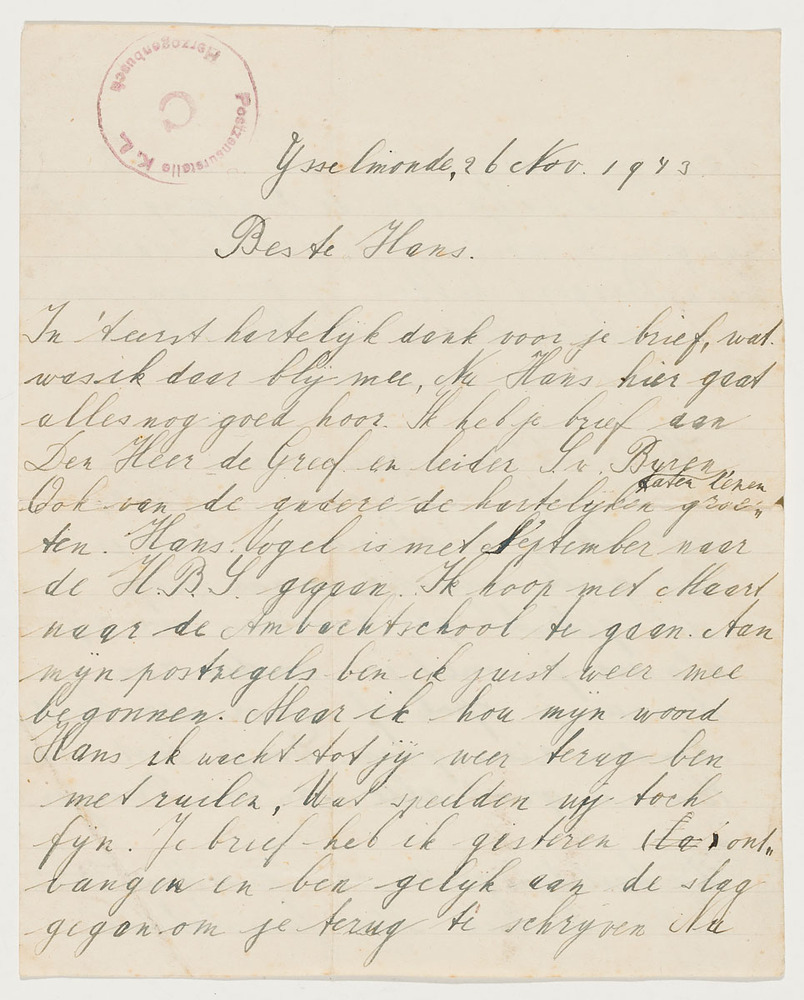 Postzensurstelle K.L.
Herzogenbusch
C
Ysselmonde, 26 Nov. 1943
Beste Hans.
In 't eerst hartelijk dank voor je brief, wat
was ik daar blij mee, Nu Hans hier gaat
alles nog goed hoor. Ik heb je brief aan
Den Heer de Greef en leider S v. Buren
laten lezen
Ook van de andere de hartelijken groe„
ten. Hans Vogel is met September naar
de H.B.S. gegaan. Ik hoop met Maart
naar de Ambachtschool te gaan. Aan
mijn postzegels ben ik juist weer mee
begonnen. Maar ik hou mijn woord
Hans ik wacht tot jij weer terug ben
met ruilen, Wat speelden wij toch
fijn. Je brief heb ik gisteren (Za) ont„
vangen en ben gelijk aan de slag
gegan om je terug te schrijven Nu